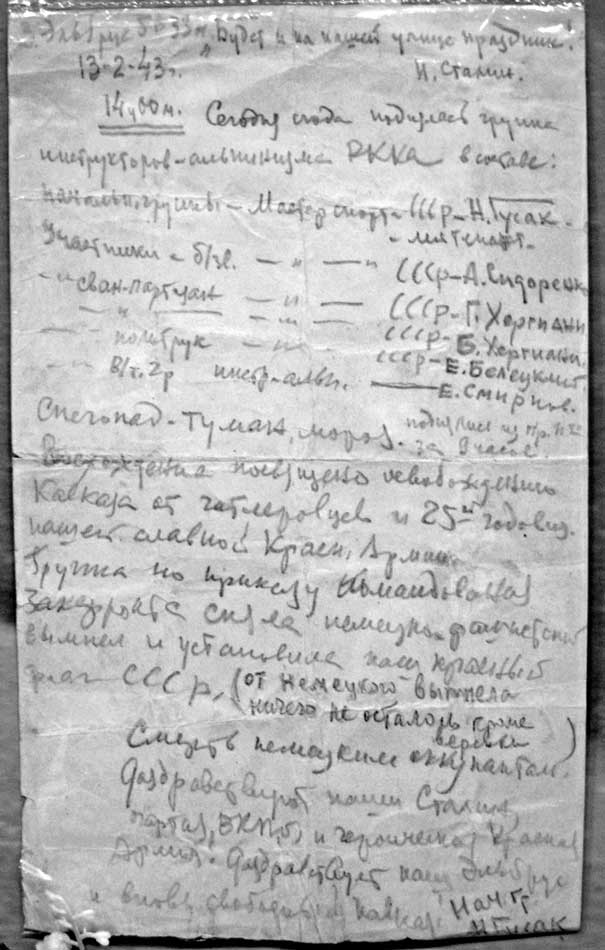 Эльбрус 5633 м. "Будет и на нашей улице праздник"!
13-2-43г. И. Сталин.
14ч00м. Сегодня сюда поднялась группа
инструкторов-альпинизма РККА в составе:
начальн. группы - Мастер спорта СССР - Н. Гусак -
- лейтенант -
Участники - б/зв. — " — " СССР - А. Сидоренко
- " - сван-партизан — " — СССР - Г. Хергиани
— " — — " — СССР - Б. Хергиани.
— " — политрук — " — СССР - Е. Белецкий.
— " — В/т. 2р инстр-альп. — Е. Смирнов.
Снегопад - туман, мороз. поднялись из
за 9 часов.
Восхождение посвящено освобождению
Кавказа от гитлеровцев и 25й годовщ.
нашей славной Красн. Армии.
Группа по приказу Командования
Закфронта сняла немецко-фашистский
вымпел и установила наш красный
флаг СССР. (от немецкого вымпела
ничего не осталось кроме
веревки)
Смерть немецким оккупантам.
Даздравствует наш Сталин,
партия, ВКП(б) и героическая Красная
Армия. Даздравствует наш Эльбрус
и вновь свободный Кавказ! Нач. гр
Н Гусак